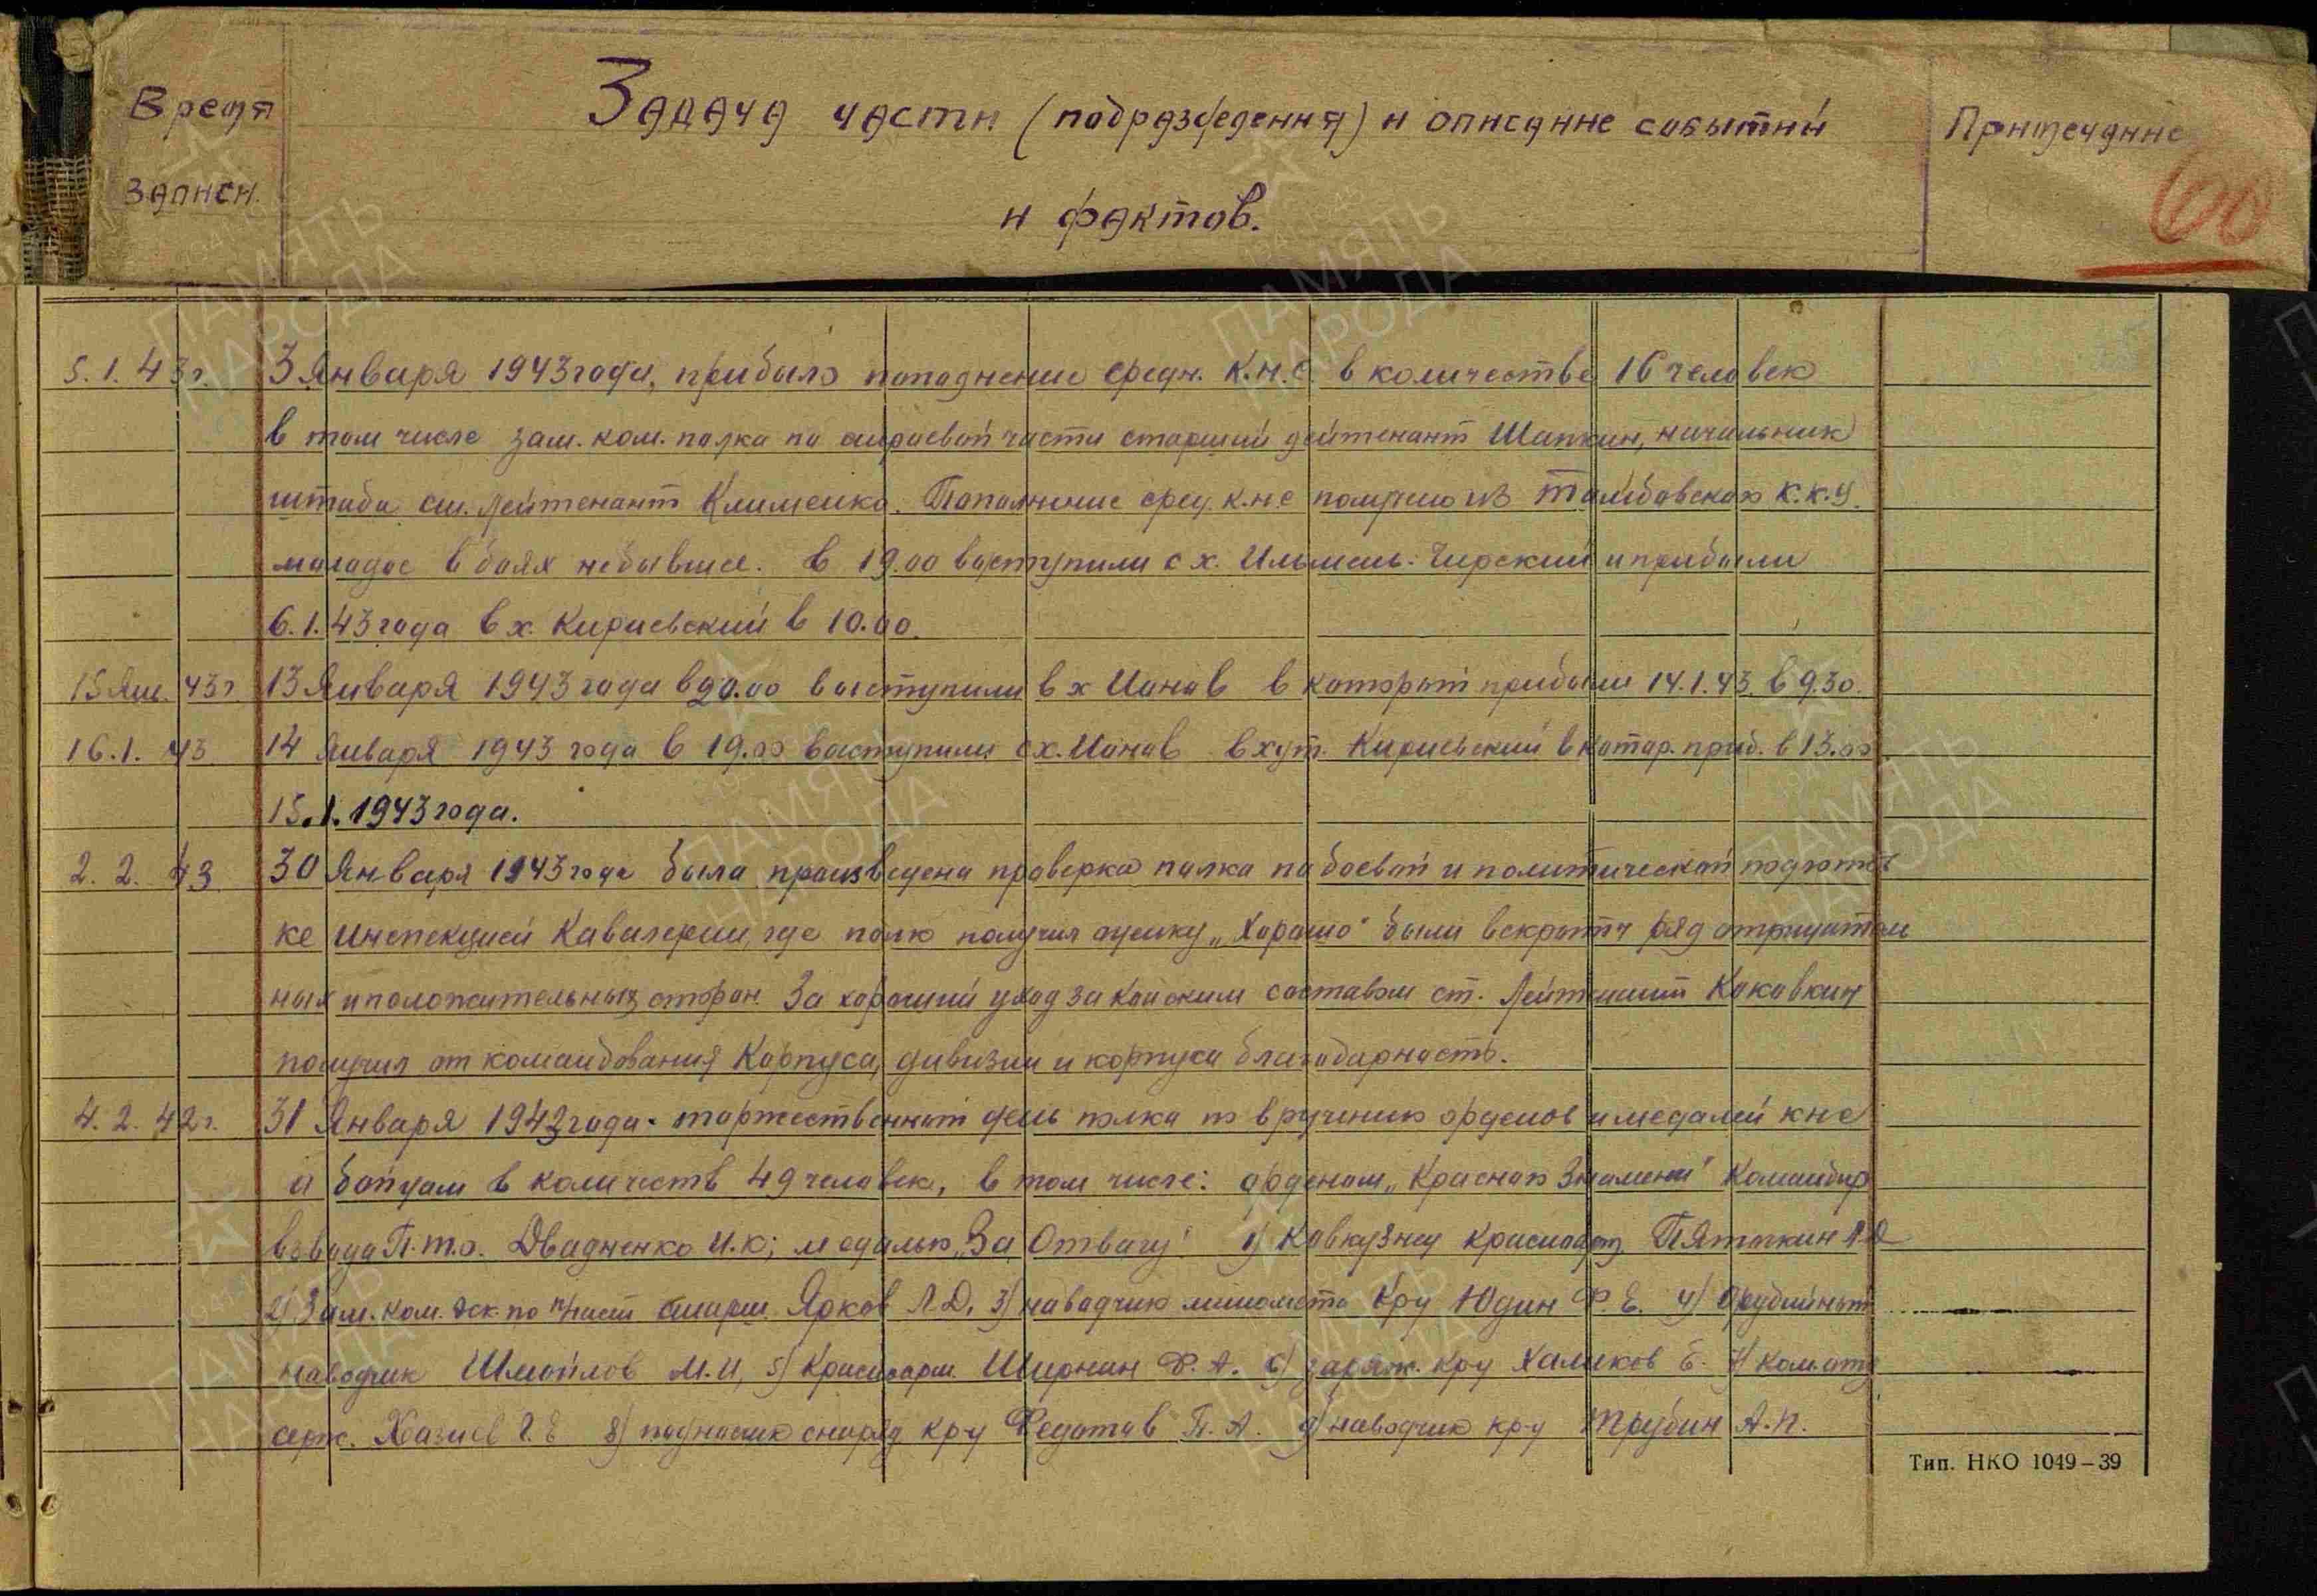 Время
записи.
Задача части (подразделения) и описание событий
и фактов.
Примечание
60
5.1.43г. 3 Января 1943 года, прибыло пополнение средн. К.н.с. в количестве 16 человек
в том числе зам. ком. полка по строевой части старший лейтенант Шапкин, начальник
штаба ст. Лейтенант Клименко. Пополнение сред. к.н.с получено из Тамбовского К.К.У.
молодое в боях небывшее. в 19.00 выступили с х. Ильмень-Чирский и прибыли
6.1.43 года в х. Кириевский в 10.00.
15 Янв. 43г. 13 Января 1943 года в 20.00 выступили в х Ионов в который прибыли 14.1.43. в 9.30.
16.1.43. 14 Января 1943 года в 19.00 выступили с х. Ионов в хут. Кириевский в котор. приб. в 13.00
15.1.1943 года.
2.2.43 30 Января 1943 года была произведена проверка полка по боевой и политической подготов
ке Инспекцией Кавалерии, где полк получил оценку „Хорошо" были вскрыты ряд отрицатель
ных и положительных сторон. За хороший уход за конским составом ст. Лейтенант Коковкин
получил от командования Корпуса, дивизии и корпуса благодарность.
4.2.42г. 31 Января 1943 года - торжественный день полка по вручению орденов и медалей кнс
и бойцам в количеств 49 человек, в том числе: орденом „Красного Знамени" Командир
взвода П.т.о. Двадненко И.К; медалью „За Отвагу" 1) Ковкузнец красноарм. Пяточкин
2) Зам. ком. эск. по п/части старш. Ярков Л.Д, 3) наводчик миномета Кр-ц Юдин Ф.Е. 4) Орудийный
наводчик Шмойлов М.И, 5) Красноарм. Ширнин Ф.А. 6) заряж. кр-ц Халиков Б. 7) Ком. отд
серж. Хазиев Г.Е 8) подносчик снаряд кр-ц Федотов П.А. 9) наводчик кр-ц Трубин А.П.
Тип. НКО 1049–39
ПАМЯТЬ
НАРОДА